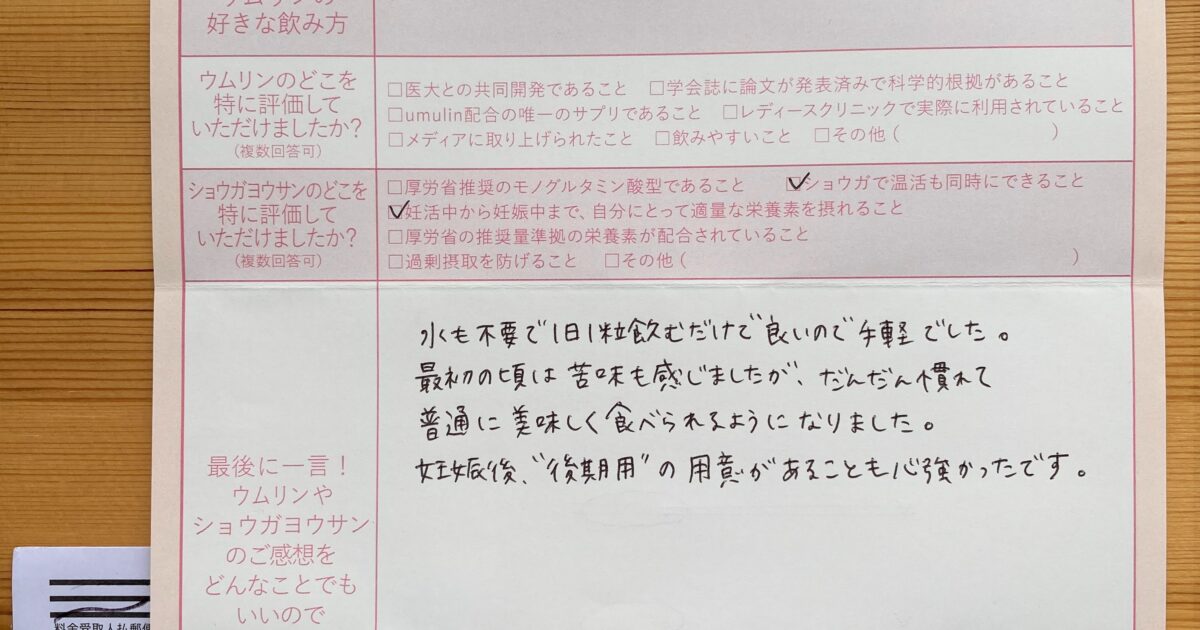 ウムリンの
好きな飲み方
ウムリンのどこを
特に評価して
いただけましたか?
(複数回答可)
□医大との共同開発であること □学会誌に論文が発表済みで科学的根拠があること
□umulin配合の唯一のサプリであること □レディースクリニックで実際に利用されていること
□メディアに取り上げられたこと □飲みやすいこと □その他 ( )
ショウガヨウサンのどこを
特に評価して
いただけましたか?
(複数回答可)
□厚労省推奨のモノグルタミン酸型であること ☑ショウガで温活も同時にできること
☑妊活中から妊娠中まで、自分にとって適量な栄養素を摂れること
□厚労省の推奨量準拠の栄養素が配合されていること
□過剰摂取を防げること □その他 ( )
最後に一言!
ウムリンや
ショウガヨウサン
のご感想を
どんなことでも
いいので
水も不要で1日1粒飲むだけで良いので手軽でした。
最初の頃は苦味も感じましたが、だんだん慣れて
普通に美味しく食べられるようになりました。
妊娠後、“後期用”の用意があることも心強かったです。
料金受取人払郵便